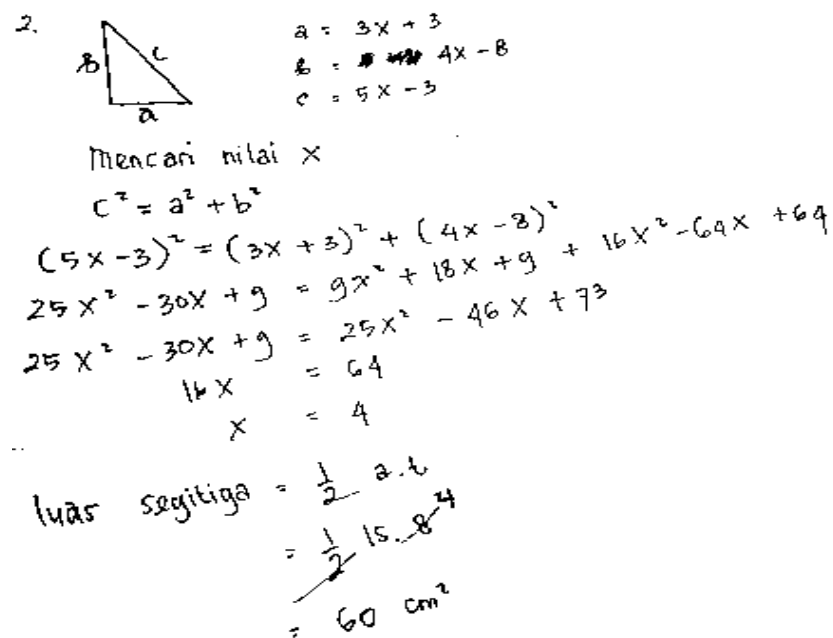 2.
b c a
a = 3x + 3
b = 4x - 8
c = 5x - 3
Mencari nilai x
c² = a² + b²
(5x - 3)² = (3x + 3)² + (4x - 8)²
25x² - 30x + 9 = 9x² + 18x + 9 + 16x² - 64x + 64
25x² - 30x + 9 = 25x² - 46x + 73
16x = 64
x = 4
luas segitiga = 1/2 a.t
= 1/2 15 . 8 4
= 60 cm²